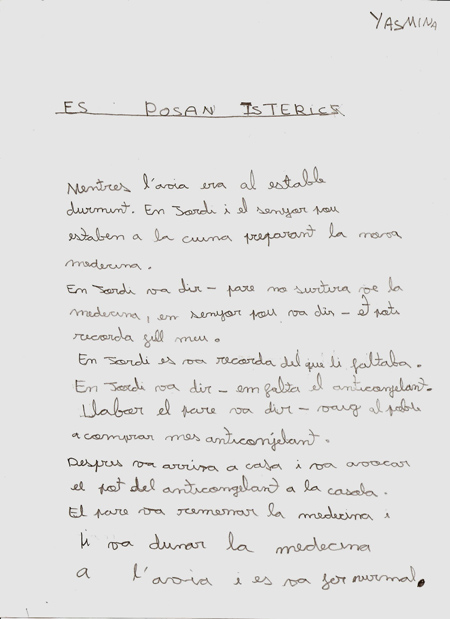 YASMINA
ES POSAN ISTERICS
Mentres l'avia era al estable
durmint. En Jordi i el senyor pou
estaben a la cuina preparant la nova
medecina.
En Jordi va dir - pare no surtira ve la
medecina, em senyor pou va dir - et pots
recorda fill meu.
En Jordi es va recorda del que li faltaba.
En Jordi va dir - em falta el anticonjelant.
Llabor el pare va dir - vaig al poble
a comprar mes anticonjelant.
Despris va arriva a casa i va avocar
el pot del anticongelant a la casola.
El pare va remenar la medecina i
li va dunar la medecina
a l'avia i es va fer nurmal.